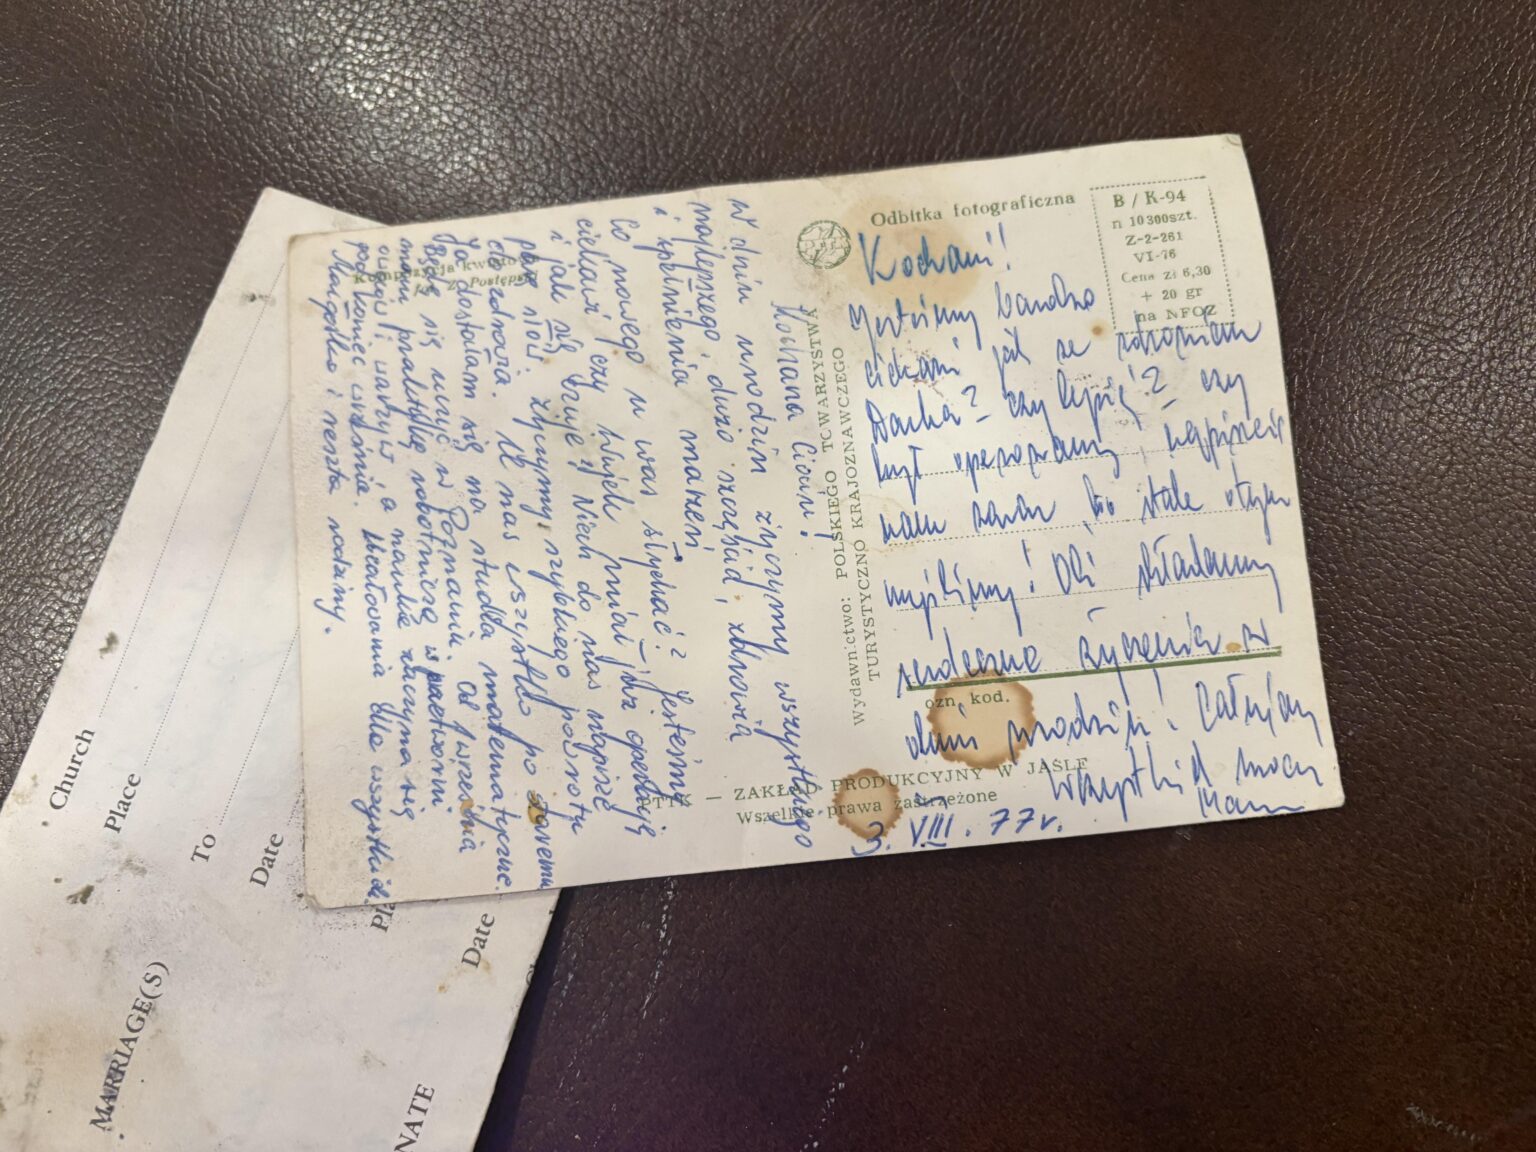 Kochana Ciociu!
W dniu urodzin życzymy wszystkiego
najlepszego, dużo szczęścia, zdrowia
i spełnienia marzeń
Co nowego u was słychać? Jesteśmy
ciekawi czy Wujek miał już operację
i jak się czuje? Niech do nas napisze
parę słów, życzymy szybkiego powrotu
do zdrowia. U nas wszystko po staremu
Ja dostałam się na studia matematyczne.
Będę się uczyć w Poznaniu. Od 1 września
mam praktykę robotniczą w państwowym
i warzyw a nauka zaczyna się
pod koniec września. Ucałowania dla wszystkich.
Małgośka i reszta rodziny.
Kompozycja kwiatowa
fot. Z. Postępski
PTTK — ZAKŁAD PRODUKCYJNY W JAŚLE
Wszelkie prawa zastrzeżone
Wydawnictwo: POLSKIEGO TOWARZYSTWA
TURYSTYCZNO KRAJOZNAWCZEGO
PTTK
Odbitka fotograficzna
B / K-94
n 10300szt.
Z-2-261
VI-76
Cena zł 6,30
+ 20 gr
na NFOZ
Kochani!
Jesteśmy bardzo
ciekawi jak ze zdrowiem
Darka? czy lepiej? czy
był operowany, napiszcie
nam zaraz, bo stale o tym
myślimy! składamy
serdeczne życzenia z
ozn. kod.
dnia urodzin! Całujemy
Wszystkich mocno
3. VIII. 77 r.
Church
Place
To
Date
Date
MARRIAGE(S)
NATE